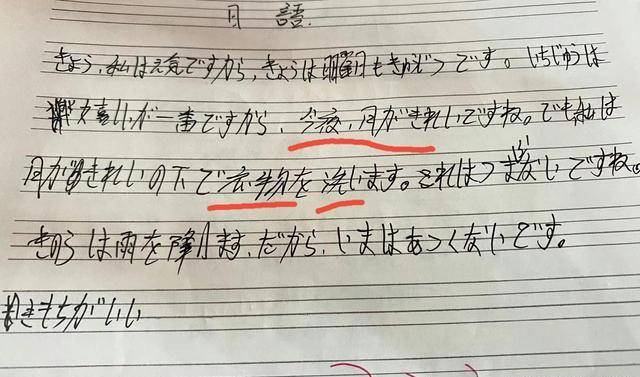 日語
きょう、私は元気ですから、きょうは日曜日もきゅうじつです。いちじゅうは
が一番ですから、今夜、月がきれいですね。でも私は
月がきれいの下で衣物を洗います。それはつまらないですね。
きのうは雨を降ります、だから、いまはあつくないです。
きもちがいい